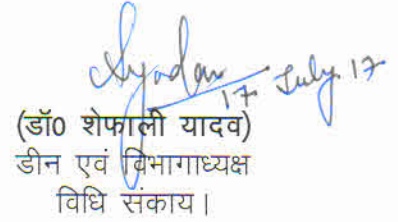 Syadav
17 July 17
(डॉ0 शेफाली यादव)
डीन एवं विभागाध्यक्ष
विधि संकाय।